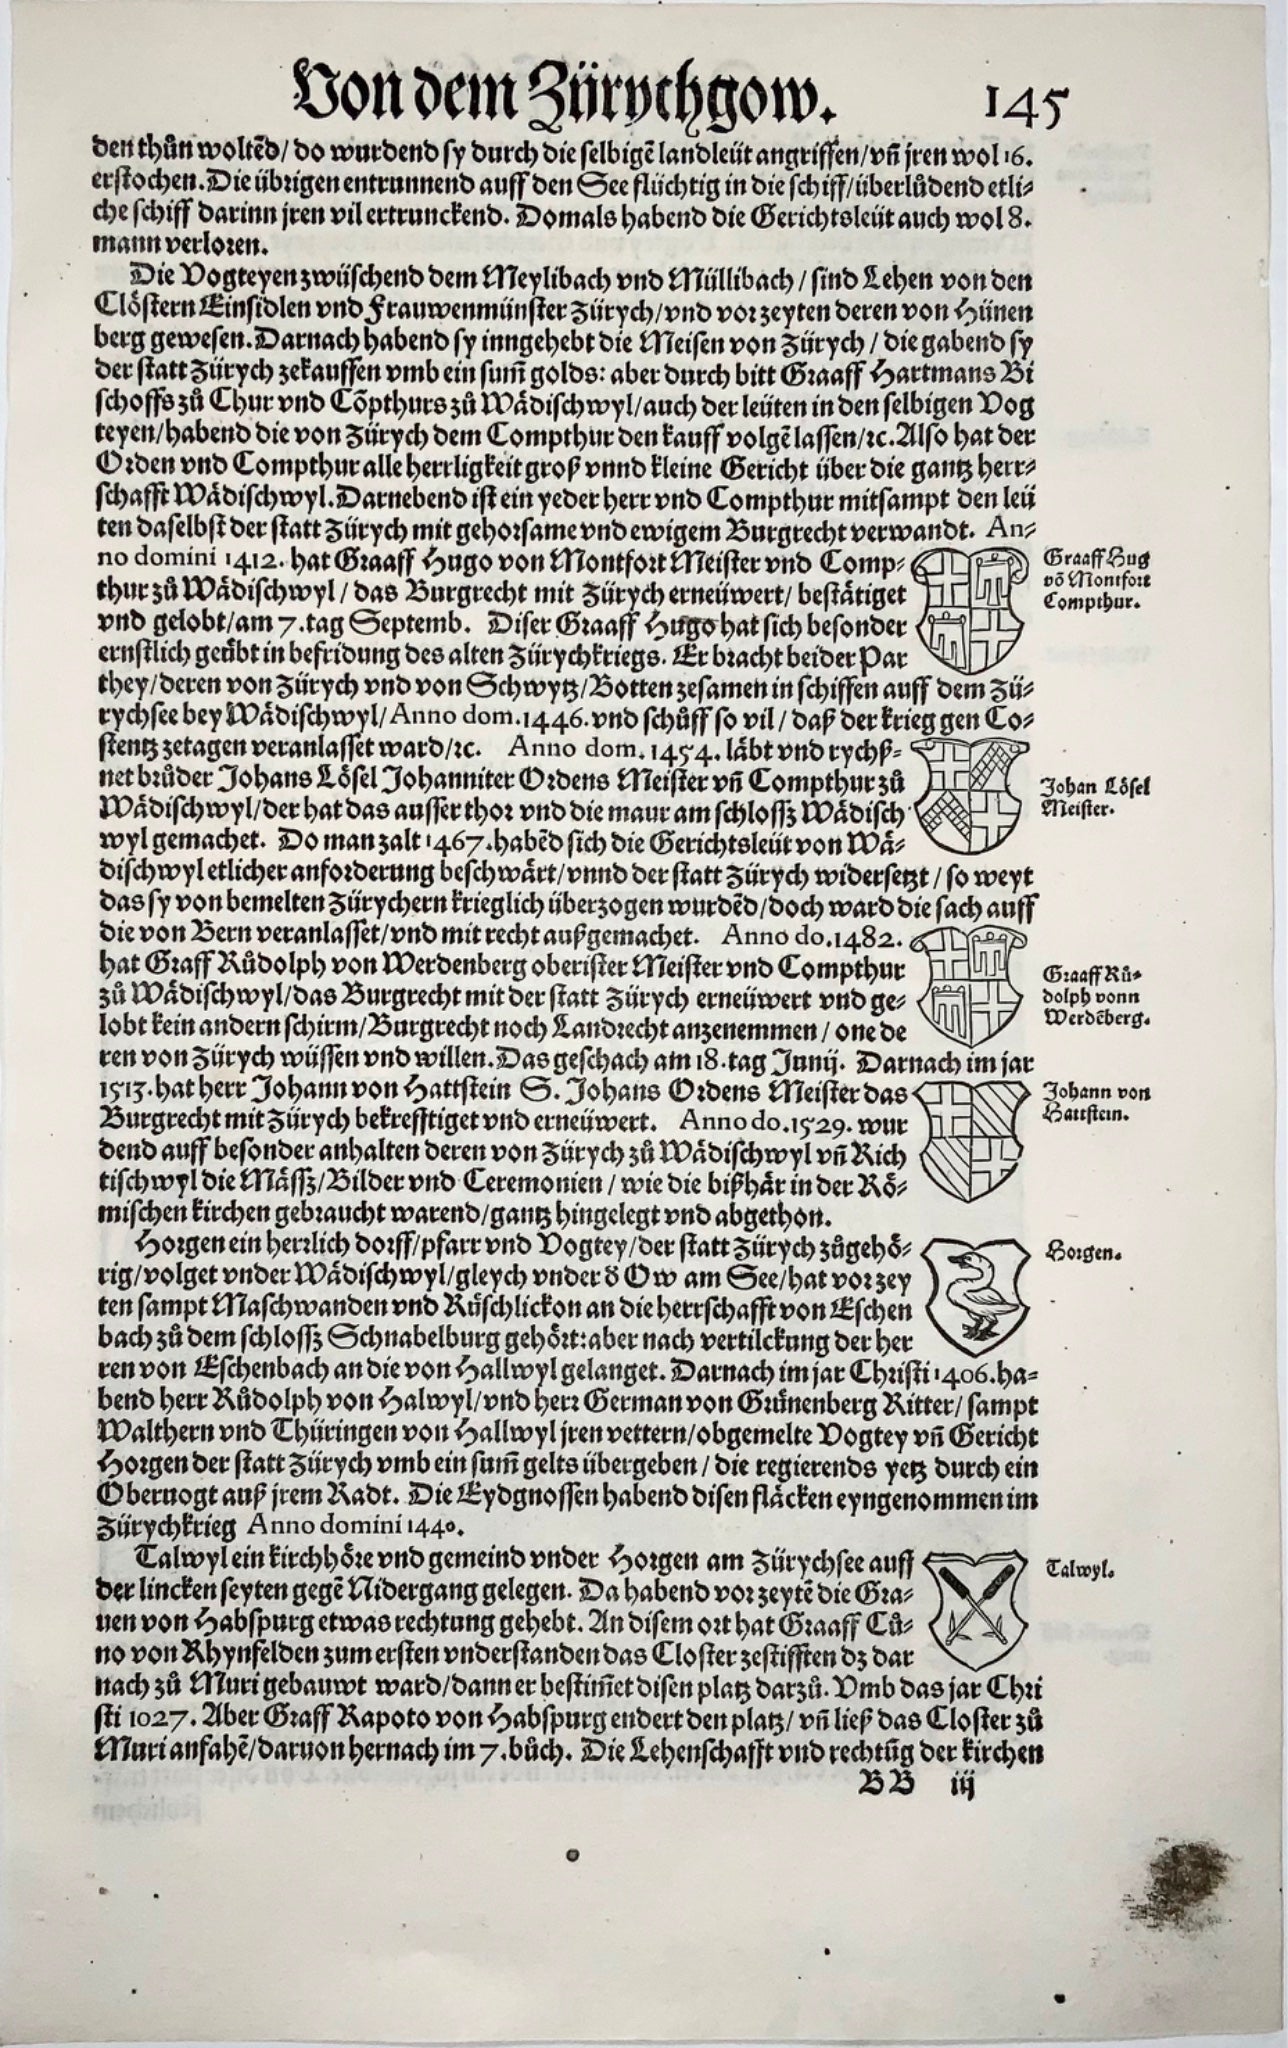 Von dem Zürychgow. 145
den thůn woltēd/ do wurdend sy durch die selbigē landleüt angriffen/ vñ jren wol 16.
erstochen. Die übrigen entrunnend auff den See flüchtig in die schiff/ überlůdend etli⸗
che schiff darinn jren vil ertrunckend. Domals habend die Gerichtsleüt auch wol 8.
mann verloren.
Die Vogteyen zwüschend dem Meylibach vnd Müllibach/ sind Lehen von den
Clöstern Einsidlen vnd Frauwenmünster Zürych/ vnd vorzeyten deren von Hünen
berg gewesen. Darnach habend sy inngehebt die Meisen von Zürych/ die gabend sy
der statt Zürych zekauffen vmb ein sum̄ golds: aber durch bitt Graaff Hartmans Bi
schoffs zů Chur vnd Cõpthurs zů Wådischwyl/ auch der leüten in den selbigen Vog
teyen/ habend die von Zürych dem Compthur den kauff volgē lassen/ ꝛc. Also hat der
Orden vnd Compthur alle herrligkeit groß vnnd kleine Gericht über die gantz herr⸗
schafft Wådischwyl. Darnebend ist ein yeder herr vnd Compthur mitsampt den leü
ten daselbst der statt Zürych mit gehorsame vnd ewigem Burgrecht verwandt. An⸗
no domini 1412. hat Graaff Hugo von Montfort Meister vnd Comp⸗
thur zů Wådischwyl/ das Burgrecht mit Zürych erneüwert/ beståtiget
vnd gelobt/ am 7. tag Septemb. Diser Graaff Hugo hat sich besonder
ernstlich geübt in befridung des alten Zürychkriegs. Er bracht beider Par
they/ deren von Zürych vnd von Schwytz/ Botten zesamen in schiffen auff dem Zü⸗
rychsee bey Wådischwyl/ Anno dom. 1446. vnd schůff so vil/ daß der krieg gen Co⸗
stentz zetagen veranlasset ward/ ꝛc. Anno dom. 1454. låbt vnd rychß⸗
net brůder Johans Lösel Johanniter Ordens Meister vñ Compthur zů
Wådischwyl/ der hat das ausser thor vnd die maur am schlossz Wådisch
wyl gemachet. Do man zalt 1467. habēd sich die Gerichtsleüt von Wå⸗
dischwyl etlicher anforderung beschwårt/ vnnd der statt Zürych widersetzt/ so weyt
das sy von bemelten Zürychern krieglich überzogen wurdēd/ doch ward die sach auff
die von Bern veranlasset/ vnd mit recht außgemachet. Anno do. 1482.
hat Graff Růdolph von Werdenberg oberister Meister vnd Compthur
zů Wådischwyl/ das Burgrecht mit der statt Zürych erneüwert vnd ge⸗
lobt kein andern schirm/ Burgrecht noch Landrecht anzenemmen/ one de
ren von Zürych wüssen vnd willen. Das geschach am 18. tag Junij. Darnach im jar
1513. hat herr Johann von Hattstein S. Johans Ordens Meister das
Burgrecht mit Zürych bekrefftiget vnd erneüwert. Anno do. 1529. wur
dend auff besonder anhalten deren von Zürych zů Wådischwyl vñ Rich
tischwyl die Måssz/ Bilder vnd Ceremonien/ wie die bißhår in der Rö⸗
mischen kirchen gebraucht warend/ gantz hingelegt vnd abgethon.
Horgen ein herrlich dorff/ pfarr vnd Vogtey/ der statt Zürych zůgehö⸗
rig/ volget vnder Wådischwyl/ gleych vnder ð Ow am See/ hat vorzey
ten sampt Maschwanden vnd Rüschlickon an die herrschafft von Eschen
bach zů dem schlossz Schnabelburg gehört: aber nach vertilckung der her
ren von Eschenbach an die von Hallwyl gelanget. Darnach im jar Christi 1406. ha⸗
bend herr Růdolph von Halwyl/ vnd herr German von Grünenberg Ritter/ sampt
Walthern vnd Thüringen von Hallwyl jren vettern/ obgemelte Vogtey vñ Gericht
Horgen der statt Zürych vmb ein sum̄ gelts übergeben/ die regierends yetz durch ein
Obervogt auß jrem Radt. Die Eydgnossen habend disen fläcken eyngenommen im
Zürychkrieg Anno domini 1440.
Talwyl ein kirchhöre vnd gemeind vnder Horgen am Zürychsee auff
der lincken seyten gegē Nidergang gelegen. Da habend vorzeytē die Gra⸗
uen von Habspurg etwas rechtung gehebt. An disem ort hat Graaff Ců⸗
no von Rhynfelden zum ersten vnderstanden das Closter zestifften dz dar
nach zů Muri gebauwt ward/ dann er bestim̄et disen platz darzů. Vmb das jar Chri
sti 1027. Aber Graff Rapoto von Habspurg endert den platz/ vñ ließ das Closter zů
Muri anfahē/ daruon hernach im 7. bůch. Die Lehenschafft vnd rechtũg der kirchen
BB iij
Graaff Hug
võ Montfort
Compthur.
Johan Lösel
Meister.
Graaff Rů⸗
dolph vonn
Werdēberg.
Johann von
Hattstein.
Horgen.
Talwyl.